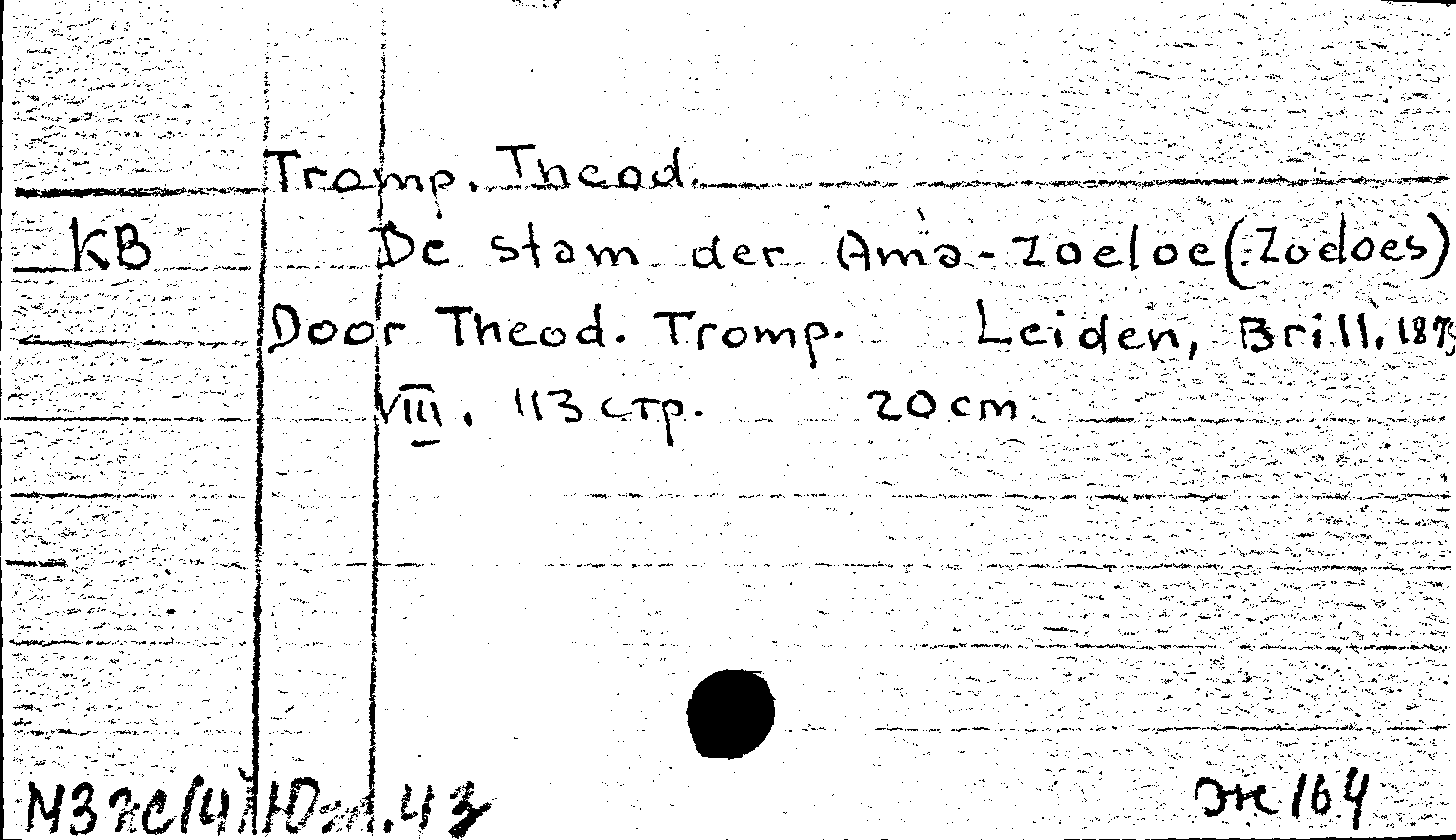 Tromp. Theod.
KB De stam der Ama-Zoeloe (Zoeloes)
Door Theod. Tromp. Leiden, Brill. 187
VIII. 113 стр. 20 cm.
ж 164